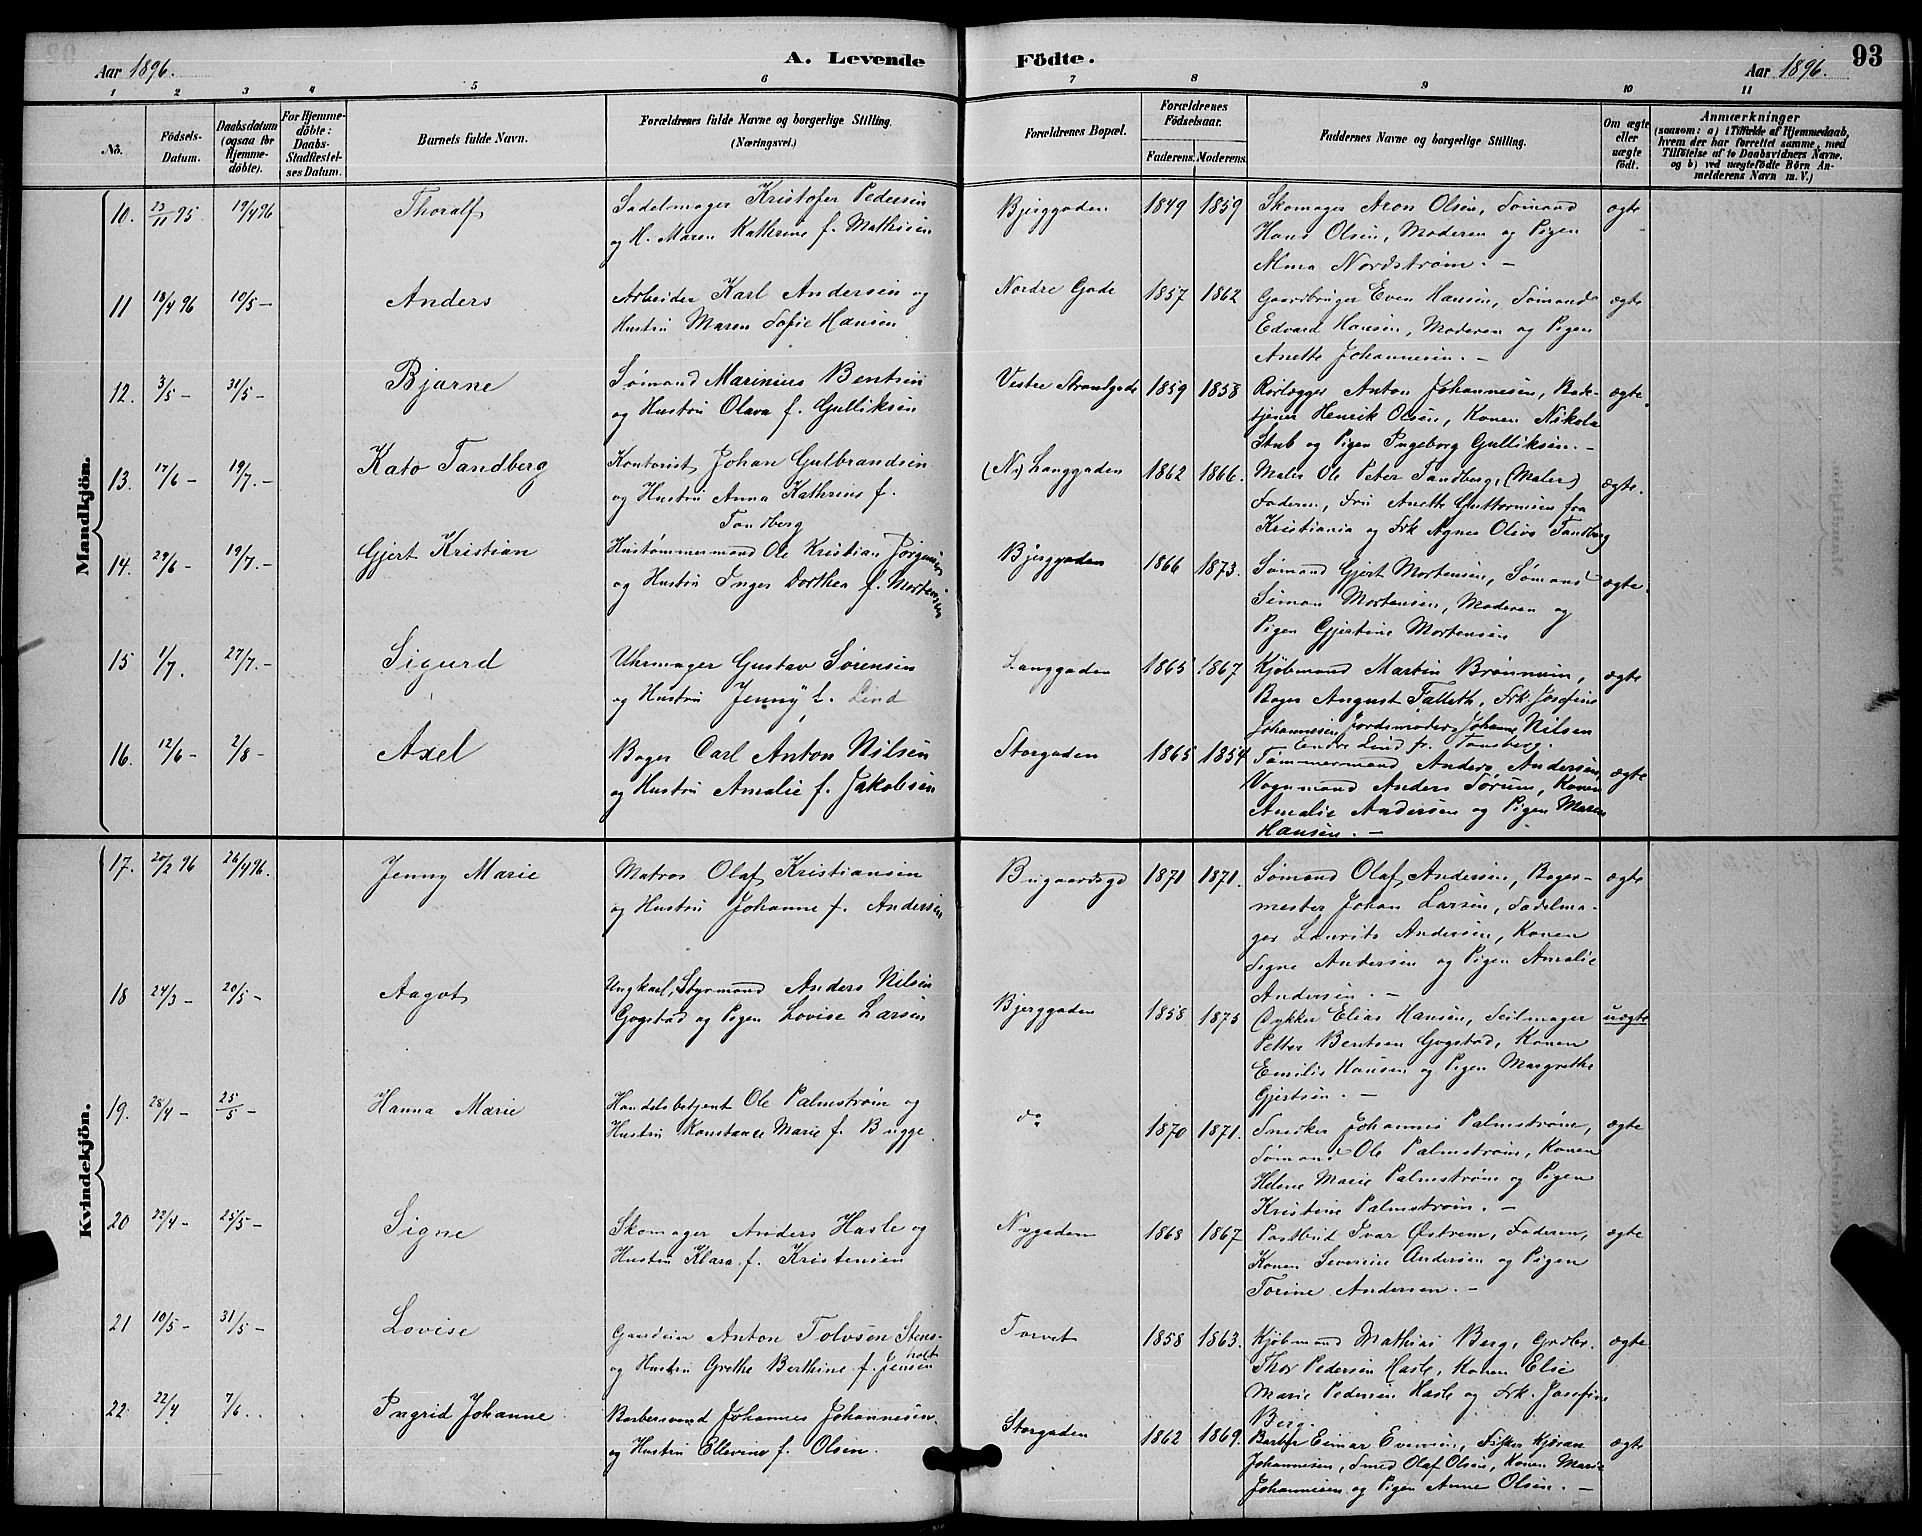 Aar 1896.
A. Levende
Födte.
Aar 1896.
93
1 2 3 4 5 6 7 8 9 10 11
No.
Födsels-
Datum.
Daabsdatum
(ogsaa for
Hjemme-
döbte).
For Hjemme-
döbte:
Daabs-
Stadfæstel-
ses Datum.
Barnets fulde Navn.
Forældrenes fulde Navne og borgerlige Stilling.
(Næringsvei.)
Forældrenes Bopæl.
Forældrenes
Födselsaar.
Faderens. Moderens.
Faddernes Navne og borgerlige Stilling.
Om ægte
eller
uægte
født.
Anmærkninger
(saasom: a) i Tilfælde af Hjemmedaab,
hvem der har forrettet samme, med
Tilföielse af to Daabsvidners Navne,
og b) ved uægtefödte Börn An-
melderens Navn m. V.)
Mandkjön.
10. 23/11 95. 19/4 96 Thoralf
Sadelmager Kristofer Pedersen
og H. Maren Kathrine f. Mathisen
Bjerggaden 1849 1859
Skomager Aron Olsen, Sømand
Hans Olsen, Moderen og Pigen
Alma Nordstrøm. –
ægte
11 18/4 96 10/5 – Anders
Arbeider Karl Andersen og
Hustru Maren Sofie Hansen
Nordre Gade 1857 1862
Gaardbruger Even Hansen, Sømand
Edvard Hansen, Moderen og Pigen
Anette Johannesen. –
ægte
12. 3/5 – 31/5 – Bjarne
Sømand Marinius Bentsen
og Hustru Olava f. Gulliksen
Vestre Strandgade 1859 1858
Rørlægger Anton Johannesen, Bade-
tjener Henrik Olsen, Konen Nikola
Stub og Pigen Ingeborg Gulliksen. –
ægte.
13. 17/6 – 19/7. – Kato Tandberg
Kontorist Johan Gulbrandsen
og Hustru Anna Kathrine f.
Tandberg
(N.) Langgaden 1862 1866.
Maler Ole Peter Tandberg, (Maler)
Faderen, Fru Anette Guttormsen fra
Kristiania og Frk Agnes Oliva Tandberg
ægte.
14. 29/6 – 19/7. – Gjert Kristian
Hustømmermand Ole Kristian Jørgensen
og Hustru Inger Dorthea f. Mortensen
Bjerggaden 1866 1873.
Sømand Gjert Mortensen, Sømand
Simon Mortensen, Moderen og
Pigen Gjertine Mortensen
ægte.
15 1/7. 27/7. – Sigurd
Uhrmager Gustav Sørensen
og Hustru Jenny f. Lind
Langgaden 1865 1867
Kjøbmand Martin Brønnum,
Bager August Falleth, Frk Josefine
Johannesen Jordemoder Johanne Nilsen
Endre Lind fr. Tønsberg.
ægte
16. 12/6 – 2/8 – Axel
Bager Carl Anton Nilsen
og Hustru Amalie f. Jakobsen
Storgaden 1865 1854
Tømmermand Anders Andersen,
Vognmand Anders Sørum, Konen
Amalie Andersen og Pigen Maren
Hansen. –
ægte
Kvindekjön.
17. 20/2 96 26/4 96. Jenny Marie
Matros Olaf Kristiansen
og Hustru Johanne f. Andersen
Bugaardsgd 1871 1871.
Sømand Olaf Andersen, Bager-
mester Johan Larsen, Sadelma-
ger Laurits Andersen, Konen
Signe Andersen og Pigen Amalie
Andersen. –
ægte
18 24/3 – 20/5 – Aagot
Ungkarl, Styrmand Anders Nilsen
Gogstad og Pigen Lovise Larsen
Bjerggaden 1858 1875
Dykker Elias Hansen, Seilmager
Petter Bentsen Gogstad, Konen
Emilie Hansen og Pigen Margrethe
Gjertsen. –
uægte
19. 28/4 – 25/5 – Hanna Marie
Handelsbetjent Ole Palmstrøm og
Hustru Konstance Marie f. Bugge.
do 1870 1871.
Snedker Johannes Palmstrøm,
Sømand Ole Palmstrøm, Konen
Helene Marie Palmstrøm og Pigen
Kristine Palmstrøm. –
ægte
20 22/4 – 25/5 – Signe
Skomager Anders Hasle og
Hustru Klara f. Kristensen
Nygaden 1868 1867
Postbud Ivar Østrem, Faderen,
Konen Severine Andersen og Pigen
Torine Andersen. –
ægte
21 10/5 – 31/5 – Lovise
Gaardeier Anton Tolvsen Stens-
holt
og Hustru Grethe Berthine f. Jensen
Torvet 1858 1863.
Kjøbmand Mathias Berg, Grdbr.
Thor Pedersen Hasle, Konen Else
Marie Pedersen Hasle og Frk. Josefine
Berg.
ægte
22. 22/4 7/6. Ingrid Johanne
Barbersvend Johannes Johannesen
og Hustru Ellevine f. Olsen.
Storgaden 1862 1869.
Barber Eimar Evensen, Fisker Kjøran
Johannesen, Smed Olaf Olsen, Konen Marie
Johannesen og Pigen Anne Olsen. –
ægte